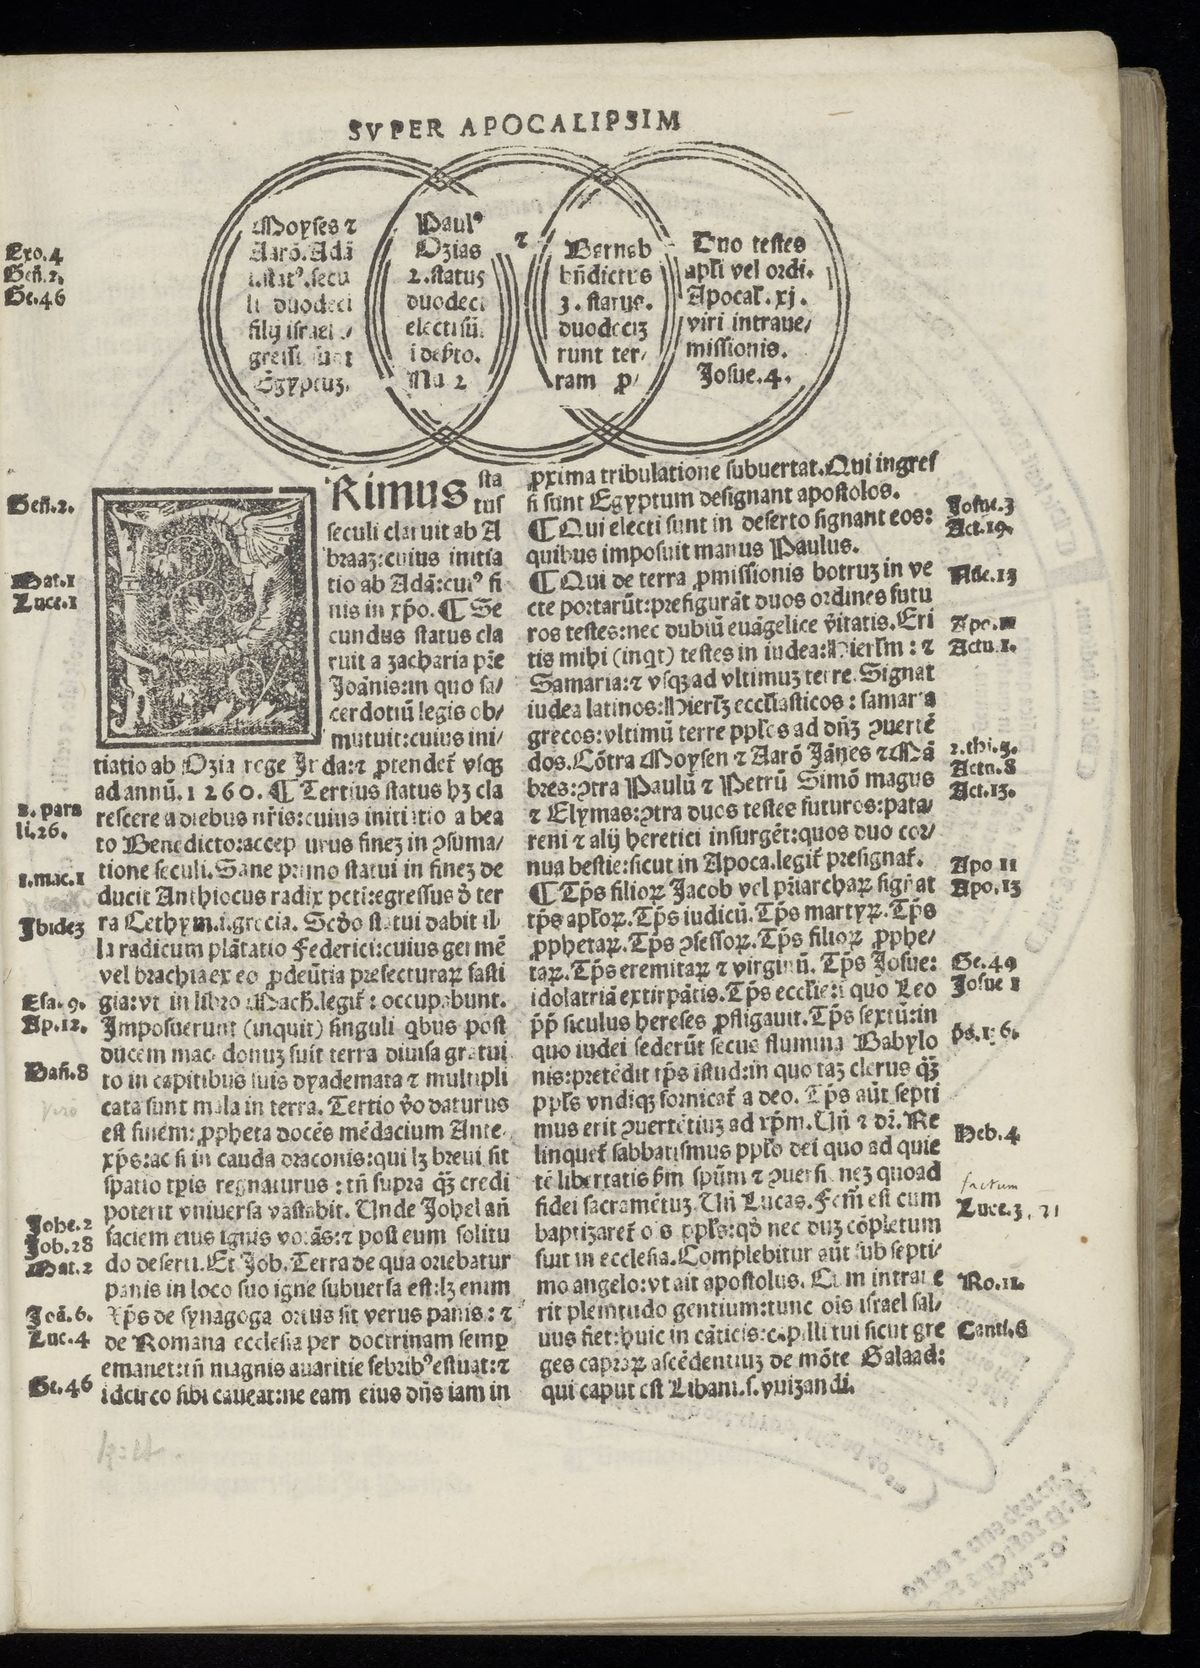 SVPER APOCALIPSIM
Exo.4
Gen̄.2.
Ge.46
Moyses ⁊
Aarō. Adā
1.statꝰ.secu
li duodeci
filij israel
gressi sunt
Egyptuꝫ.
Paulꝰ
Ozias
2.status
duodeci
electi sū.
i deẜto.
Nu 2
⁊
Barnab
bn̄dictus
3.status.
duodeciꝫ
runt ter⸗
ram ꝓ⸗
Duo testes
apl̄i vel ordi.
Apocal̄. xj.
viri intraue/
missionis.
Josue.4.
PRimus sta
tus
seculi claruit ab A
braaꝫ:cuius initia
tio ab Adā:cuiꝰ fi
nis in xp̄o. ¶ Se
cundus status cla
ruit a zacharia pr̄e
Joānis:in quo sa/
cerdotiū legis ob/
mutuit:cuius ini/
tiatio ab Ozia rege Juda:⁊ ꝓtendet̄ vsqꝫ
ad annū.1260. ¶ Tertius status hꝫ cla
rescere a diebus nr̄is:cuius initiatio a bea
to Benedicto:accepturus fineꝫ in ↄsuma/
tione seculi. Sane primo statui in fineꝫ de
ducit Anthiocus radix pcti:egressus d̄ ter
ra Cethym.i.grecia. Secd̄o statui dabit il
la radicum plātatio Federici:cuius germē
vel brachia ex eo ꝓdeūtia prefecturaꝝ fasti
gia:vt in libro Mach.legit̄: occupabunt.
Imposuerunt (inquit) singuli qbus post
ducem macedonuꝫ fuit terra diuisa gratui
to in capitibus suis dyademata ⁊ multipli
cata sunt mala in terra. Tertio v̄o daturus
est finem: ꝓpheta docēs mēdacium Ante/
xp̄s:ac si in cauda draconis:qui lꝫ breui sit
spatio tp̄is regnaturus : tn̄ supra qꝫ credi
poterit vniuersa vastabit. Unde Johel an̄
faciem eius ignis vorās:⁊ post eum solitu
do deserti. Et Job. Terra de qua oriebatur
panis in loco suo igne subuersa est:lꝫ enim
Xp̄s de synagoga ortus sit verus panis: ⁊
de Romana ecclesia per doctrinam semꝑ
emanet:tn̄ magnis auaritie febribꝰ estuat:⁊
idcirco sibi caueat:ne eam eius dn̄s iam in
Gen̄.2.
Mat.1
Luce.1
2.para
li.26.
1.mac.1
Ibideꝫ
Esa.9.
Ap.12.
Dan̄.8
Johe.2
Job.28
Mat.2
Joā.6.
Luc.4
Ge.46
ꝓxima tribulatione subuertat. Qui ingres
si sunt Egyptum designant apostolos.
¶ Qui electi sunt in deserto signant eos:
quibus imposuit manus Paulus.
¶ Qui de terra ꝓmissionis botruꝫ in ve
cte portarūt:prefigurāt duos ordines futu
ros testes:nec dubiū euāgelice v̄itatis. Eri
tis mihi (inqt) testes in iudea:Hierl̄m : ⁊
Samaria:⁊ vsqꝫ ad vltimuꝫ terre. Signat
iudea latinos:Hierl̄ꝫ eccl̄iasticos : samaria
grecos:vltimū terre ppl̄os ad dn̄ꝫ ↄuertē
dos. Cōtra Moysen ⁊ Aarō Jānes ⁊ Mā
bres:ↄtra Paulū ⁊ Petrū Simō magus
⁊ Elymas:ↄtra duos testes futuros:pata/
reni ⁊ alij heretici insurgēt:quos duo cor/
nua bestie:sicut in Apoca.legit̄ presignat̄.
¶ Tp̄s filioꝝ Jacob vel pr̄iarchaꝝ signat
tp̄s apl̄oꝝ. Tp̄s iudicū. Tp̄s martyꝝ. Tp̄s
ꝓphetaꝝ. Tp̄s ↄfessoꝝ. Tp̄s filioꝝ ꝓphe/
taꝝ. Tp̄s eremitaꝝ ⁊ virginū. Tp̄s Josue:
idolatriā extirpātis. Tp̄s eccl̄ie:i quo Leo
p̄p̄ siculus hereses ꝓfligauit. Tp̄s sextū:in
quo iudei sederūt secus flumina Babylo
nis:pretēdit tp̄s istud:in quo taꝫ clerus qꝫ
ppl̄s vndiqꝫ fornicat̄ a deo. Tp̄s aūt septi
mus erit ↄuertētiuꝫ ad xp̄m. Un̄ ⁊ dr̄. Re
linquet̄ sabbatismus ppl̄o dei quo ad quie
tē libertatis ẜm spūm ⁊ ↄuersioneꝫ quoad
fidei sacramētuꝫ. Un̄ Lucas. Fcm̄ est cum
baptizaret̄ ois ppl̄s:qd̄ nec duꝫ cōpletum
fuit in ecclesia. Complebitur aūt sub septi/
mo angelo:vt ait apostolus. Cum intraue
rit plenitudo gentium:tunc ois israel sal/
uus fiet:huic in cāticis:capilli tui sicut gre
ges capraꝝ ascēdentiuꝫ de mōte Galaad:
qui caput est Libani.s.vuizandi.
Josue.3
Act.19.
Nūe.13
Apo.11
Actu.1.
2.thi.3.
Actu.8
Act.13.
Apo 11
Apo.13
Ge.49
Josue 1
ps.136.
Heb.4
factum
Luce.3. 21
Ro.11.
Canti.6